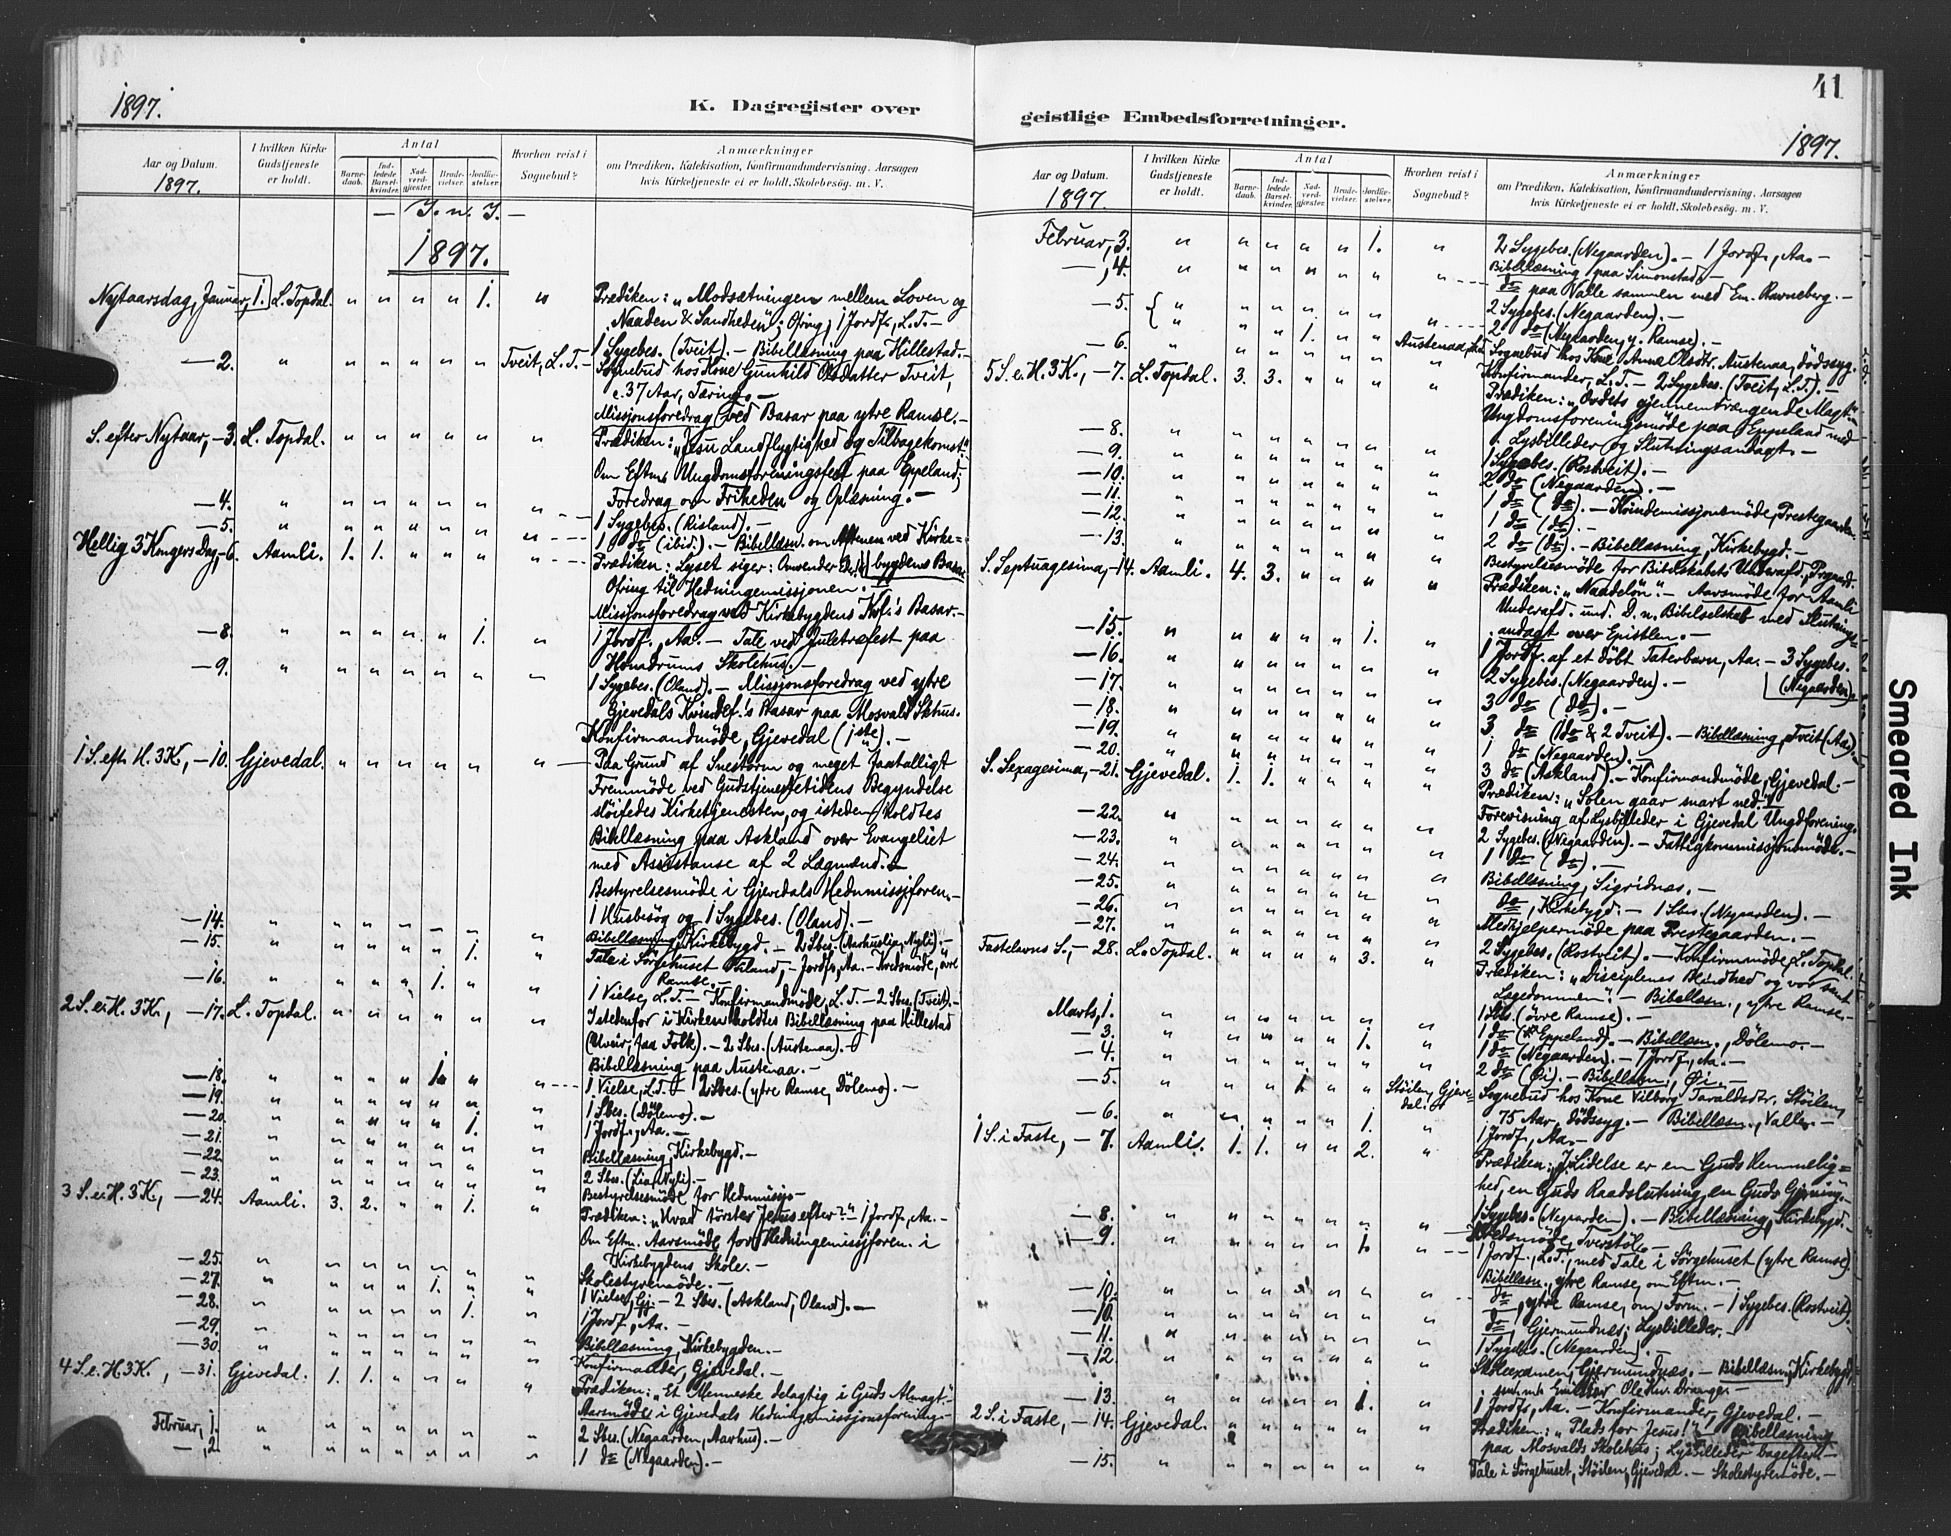 41
1897.
K. Dagregister over
geistlige Embedsforretninger.
1897.
Aar og Datum.
1897.
I hvilken Kirke Gudstjeneste er holdt.
Antal
Barne-daab.
Ind-ledede Barsel-kvinder.
Nad-verd-gjæster.
Brude-vielser.
Jordfæ-stelser.
Hvorhen reist i Sognebud?
Anmærkninger
om Prædiken, Katekisation, Konfirmandundervisning, Aarsagen
hvis Kirketjeneste ei er holdt, Skolebesøg, m. V.
— J. n. J. —
1897.
Nytaarsdag, Januar, 1. L. Topdal. " " " " 1. " Prædiken: "Modsætningen mellem Loven og
Naaden & Sandheden"; Ofring; 1 Jordf., L.T. —
1 Sygebes. (Tveit). — Bibellæsning paa Hillestad. —
— 2. " " " " " " Tveit, L.T. — Sognebud hos Kone Gunhild Olsdatter Tveit,
c. 37 Aar, Tæring. —
Missjonsforedrag ved Basar paa ytre Ramse. —
S. efter Nytaar, — 3. L. Topdal. " " " " " " Prædiken: "Jesu Landflygtighed og Tilbagekomst".
Om Eftm. Ungdomsforeningsfest paa Eppeland;
Foredrag om Friheden og Oplæsning. —
— 4. " " " " " " " 1 Sygebes. (Risland). —
— 5. " " " " " " " 1 do (ibid.). — Bibellæsn. om Aftenen ved Kirke=
bygdens Basar
Hellig 3 Kongers Dag, — 6. Aamli. 1. 1. " " " " Prædiken: Lyset siger: Omvender Eder!
Ofring til Hedningemissjonen. —
Missjonsforedrag ved Kirkebygdens Kvf.'s Basar. —
— 8. " " " " " 1. " 1 Jordf., Aa. — Tale ved Juletræfest paa
Hovadrums Skolehus. —
— 9. " " " " " " " 1 Sygebes. (Oland). — Missjonsforedrag ved ytre
Gjevedals Kvindef.'s Basar paa Mosvald Sktus.
Konfirmandmøde, Gjevedal (1ste). —
1 S. eft. H. 3 K., — 10. Gjevedal. " " " " " " — Paa Grund af Snestorm og meget faatalligt
Fremmøde ved Gudstjenestetidens Begyndelse
sløifedes Kirketjenesten, og isteden holdtes
Bibellæsning paa Askland over Evangeliet
med Assistanse af 2 Lægmænd. —
Bestyrelsesmøde i Gjevedals Hednmissjforen. —
— 14. " " " " " " " 1 Husbesøg og 1 Sygebes. (Oland). —
— 15. " " " " " 1. " Bibellæsning, Kirkebygd. — 2 Sbes. (Aarhuslia, Nyli). —
Tale i Sørgehuset, — Jordf., Aa. — Kredsmøde, øvre
Ramse. —
— 16. " " " " 1. " " 1 Vielse, L.T. — Konfirmandmøde, L.T. — 2 Sbes. (Tveit). —
2 S. e. H. 3 K., — 17. L. Topdal. " " " " " " Istedenfor i Kirken holdtes Bibellæsning paa Hillestad
(Uveir, faa Folk). — 2 Sbes. (Austenaa). —
Bibellæsning paa Austenaa. —
— 18. " " " " 1. " " 1 Vielse, L.T. — 2 Sbes. (ytre Ramse, Dølemo). —
— 19. " " " " " " " 1 Sbes. (Dølemo). —
— 20. " " " " " 1. " 1 Jordf., Aa. —
— 21. " " " " " " " Bibellæsning, Kirkebygd. —
— 22. " " " " " " " 2 Sbes. (Lia, Nyli). —
— 23. " " " " " " " Bestyrelsesmøde for Hednmissjo —
3 S. e. H. 3 K., — 24. Aamli. 3. 2. " " 1. " Prædiken: "Hvad tørster Jesus efter?" — 1 Jordf., Aa. —
Om Eftm. Aarsmøde for Hedningemissjforen. i
Kirkebygdens Skole. —
— 25. " " " " " " " Skolestyremøde. —
— 27. " " " " 1. " " 1 Vielse, Gj. — 2 Sbes. (Askland, Oland). —
— 28. " " " " " 1. " 1 Jordf., Aa. —
— 29. " " " " " " " Bibellæsning, Kirkebygden. —
— 30. " " " " " " " Konfirmander, Gjevedal. —
4 S. e. H. 3 K., — 31. Gjevedal. 1. 1. " " " " Prædiken: "Et Menneske delagtig i Guds Almagt".
Aarsmøde i Gjevedals Hedningemissjonsforening. —
Februar, 1. " " " " " " " 2 Sbes. (Negaarden, Aarhus). —
— 2. " " " " " " " 1 do (Negaarden). —
Aar og Datum.
1897.
I hvilken Kirke Gudstjeneste er holdt.
Antal
Barne-daab.
Ind-ledede Barsel-kvinder.
Nad-verd-gjæster.
Brude-vielser.
Jordfæ-stelser.
Hvorhen reist i Sognebud?
Anmærkninger
om Prædiken, Katekisation, Konfirmandundervisning, Aarsagen
hvis Kirketjeneste ei er holdt, Skolebesøg, m. V.
Februar, 3. " " " " " 1. " 2 Sygebes. (Negaarden). — 1 Jordf., Aa. —
— 4. " " " " " " " Bibellæsning paa Simonstad. —
do paa Valle sammen med Em. Ravneberg. —
— 5. " " " " " " " 2 Sygebes. (Negaarden). —
2 do (Negaarden, y. Ramse). —
— 6. " " " 1. " " Austenaa, L.T. Sognebud hos Kone Anne Olsdtr. Austenaa, dødssyg. —
Konfirmander, L.T. — 2 Sygebes. (Tveit, L.T.). —
5 S. e. H. 3 K., — 7. L. Topdal. 3. 3. " " " " Prædiken: "Ordets gjennemtrængende Magt". —
Ungdomsforeningsmøde paa Eppeland med
Lysbilleder og Slutningsandagt. —
— 8. " " " " " " " 1 Sygebes. (Rostveit). —
— 9. " " " " " " " 2 do (Negaarden). —
— 10. " " " " " " " 1 do (do). — Kvindemissjonsmøde, Prestegaarden.
— 11. " " " " " " " 1 do (do). —
— 12. " " " " " " " 2 do (do). — Bibellæsning, Kirkebygd. —
— 13. " " " " " " " Bestyrelsesmøde for Bibelskabets Underafd., Prgaard.
S. Septuagesima, — 14. Aamli. 4. 3. " " " " Prædiken: "Naadeløn". — Aarsmøde for Aamli
Underafd. und. D. n. Bibelselskab med Slutnings=
andagt over Epistlen. —
— 15. " " " " " 1. " 1 Jordf. af et døbt Taterbarn, Aa. — 3 Sygebes.
(Negaarden). —
— 16. " " " " " " " 2 Sygebes. (Negaarden). —
— 17. " " " " " " " 3 do (do). —
— 18. " " " " " " " 3 do (do & 2 Tveit). — Bibellæsning, Tveit (Aa). —
— 19. " " " " " " " 1 do (Negaarden). —
— 20. " " " " " " " 3 do (Askland). — Konfirmandmøde, Gjevedal. —
S. Sexagesima, — 21. Gjevedal. 1. 1. " " " " Prædiken: "Solen gaar snart ned!"
Forevisning af Lysbilleder i Gjevedal Ungdforening.
— 22. " " " " " " " 2 Sygebes. (Negaarden). — Fattigkommissjonsmøde. —
— 23. " " " " " " " 1 do (do). —
— 24. " " " " " " " Bibellæsning, Sigridnæs. —
— 25. " " " " " " " do, Kirkebygd. — 1 Sbes. (Negaarden). —
— 26. " " " " " " " Medhjelpermøde paa Prestegaarden. —
— 27. " " " " " " " 2 Sygebes. (Rostveit). — Konfirmmøde, L. Topdal.
Fastelavns S., — 28. L. Topdal. " " " " 3. " Prædiken: "Disciplenes Blindhed og vor samt
Lægedommen". — Bibellæsn., ytre Ramse. —
Marts, 1. " " " " " " " 1 Sbes. (øvre Ramse). —
— 3. " " " " " 1. " 1 do (Eppeland). — Bibellæsn., Dølemo. —
— 4. " " " " " " " 1 do (Negaarden). — 1 Jordf., Aa. —
2 do (Øi). — Bibellæsn., Øi. —
— 5. " " " 1 " " Støilen, Gjeve=
dal. Sognebud hos Kone Vilborg Taraldsdtr. Støilen,
75 Aar, dødssyg. — Bibellæsn., Valle. —
— 6. " " " " " 1. " 1 Jordf., Aa. —
1 S. i Faste, — 7. Aamli. 1. 1. " " 2. " Prædiken: "J. Lidelse er en Guds Hemmelig=
hed, en Guds Raadslutning, en Guds Gjerning".
— 8. " " " " " " " 1 Sygebes. (Negaarden). — Bibellæsning, Kirkebygd. —
Kredsmøde, Tverstøl. —
— 9. " " " " " 1. " 1 Jordf., L.T., med Tale i Sørgehuset (ytre Ramse).
Bibellæsn., ytre Ramse, om Eftm. —
— 10. " " " " " " " do, ytre Ramse, om Form. — 1 Sygebes. (Rostveit).
— 10. " " " " " " " do, Gjermundnes; Lysbilleder. —
— 11. " " " " " " " 1 Sygebes. (Negaarden). —
— 12. " " " " " " " Skoleexamen, Gjermundnæs. — Bibellæsning, Kirkebygd,
Oledtr. Drange. —
— 13. " " " " " 1. " 1 Jordf., Aa. — Konfirmander, Gjevedal. —
2 S. i Faste, — 14. Gjevedal. " " " " " " Prædiken: "Plads for Jesus!" — Bibellæsning
paa Mosvalds Skolehus; Lysbilleder bagefter. —
— 15. " " " " " " " Tale i Sørgehuset, Støilen, Gjevedal. — Skolestyremøde. —
Smeared Ink